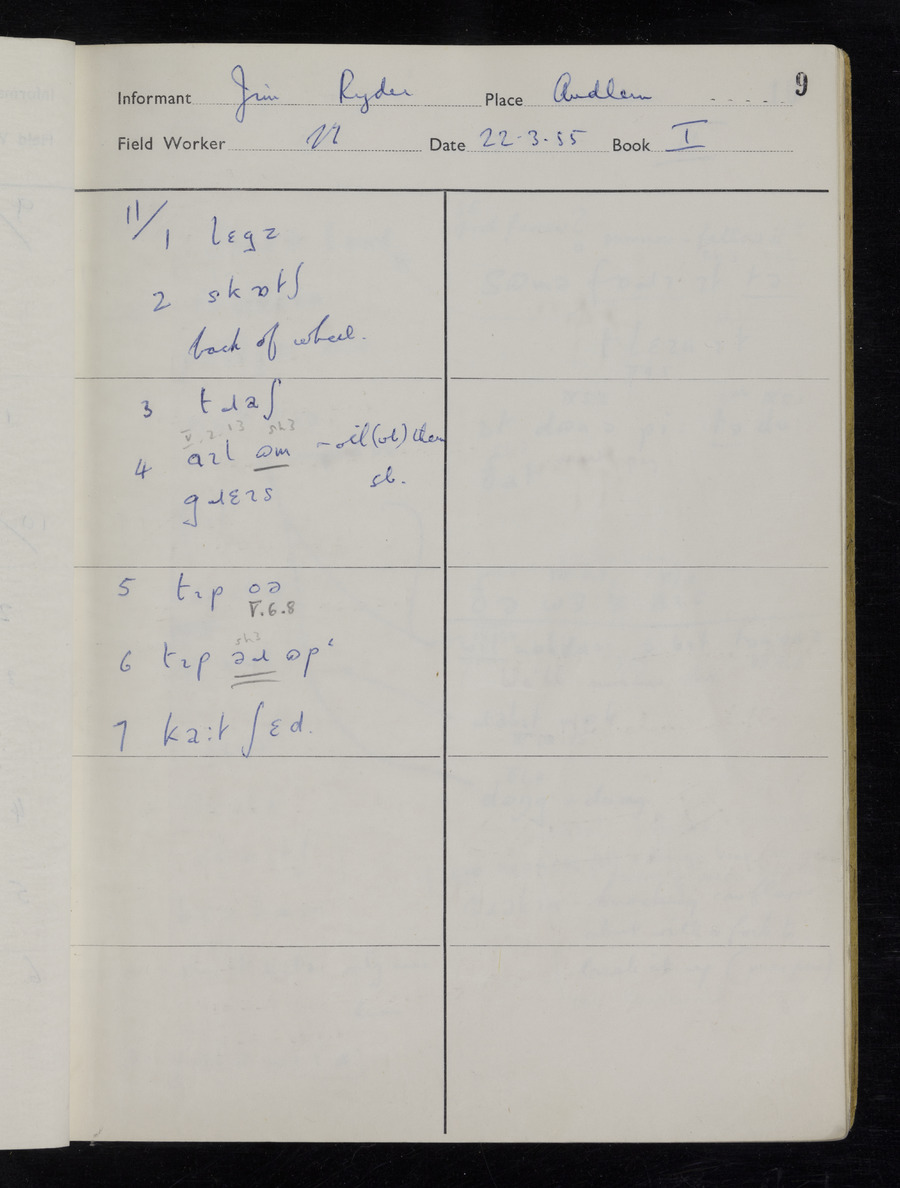 9
Informant Jim Ryder Place Audlem
Field Worker Date 22-3-55 Book I
11/
1 legz
2 skɒtʃ
back of wheel.
3 tɹaʃ
V.2.13 sh3
4 aɪl əm - oil (vb) them
gɹɛɪs sb.
5 tɪp oə
V.6.8
sh3
6 tɪp əɹ ɷp
7 ka:t ʃɛd.